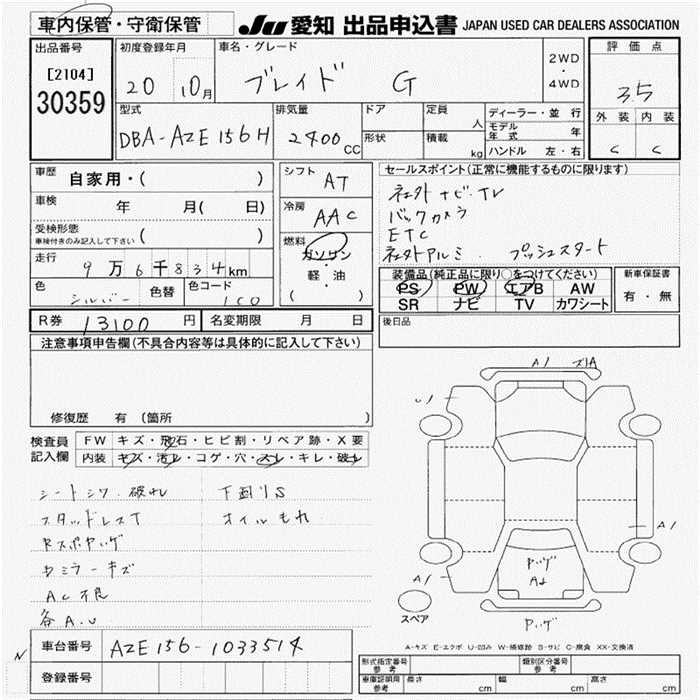 車内保管・守衛保管
JU 愛知 出品申込書 JAPAN USED CAR DEALERS ASSOCIATION
出品番号
[2104]
30359
初度登録年月
20 10月
車名・グレード
ブレイド G
2WD
・
4WD
評価点
3.5
外装 内装
C C
型式
DBA-AZE156H
排気量
2400CC
ドア
形状
定員
人
積載
kg
ディーラー・並行
モデル年式 年
ハンドル 左・右
車歴 自家用・( )
車検 年 月( 日)
受検形態
車検付きのみ記入して下さい ( )
走行 9万6千834km
色 シルバー 色替 色コード 1C0
シフト AT
冷房 AAC
燃料 ガソリン
・
軽・油
( )
セールスポイント(正常に機能するものに限ります)
社外ナビ・TV
バックカメラ
ETC
社外アルミ. プッシュスタート
装備品(純正品に限り○をつけてください)
PS PW エアB AW
SR ナビ TV カワシート
新車保証書
有・無
R券 13100円 名変期限 月 日
後日品
注意事項申告欄(不具合内容等は具体的に記入して下さい)
修復歴 有(箇所 )
検査員記入欄
FW キズ・飛石・ヒビ割・リペア跡・X要
内装 キズ・汚レ・コゲ・穴・スレ・キレ・破レ
シートシワ・破れ 下廻りS
スタッドレスT オイルもれ
Rスポヤンゲ
Rミラーキズ
AC不良
各A.U
車台番号 AZE156-1033514
登録番号
N
A1 ズ1A
U1
A1
A1
ヤンゲ
A1
スペア
ヤンゲ
A-キズ E-エクボ U-凹み W-補修跡 S-サビ C-腐食 XX-交換済
形式指定番号
参考
類別区分番号
参考
車庫証明用
参考
長さ cm 幅 cm 高さ cm